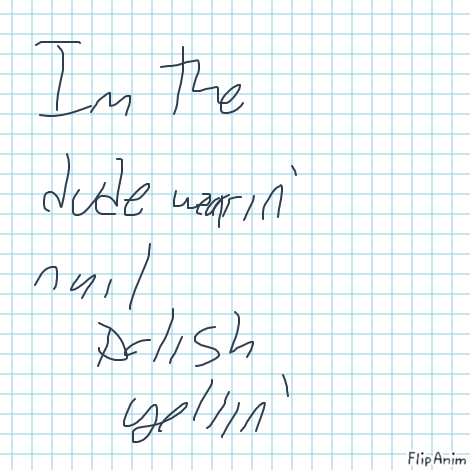 Im the
dude wearin'
nail
polish
yellin'
FlipAnim